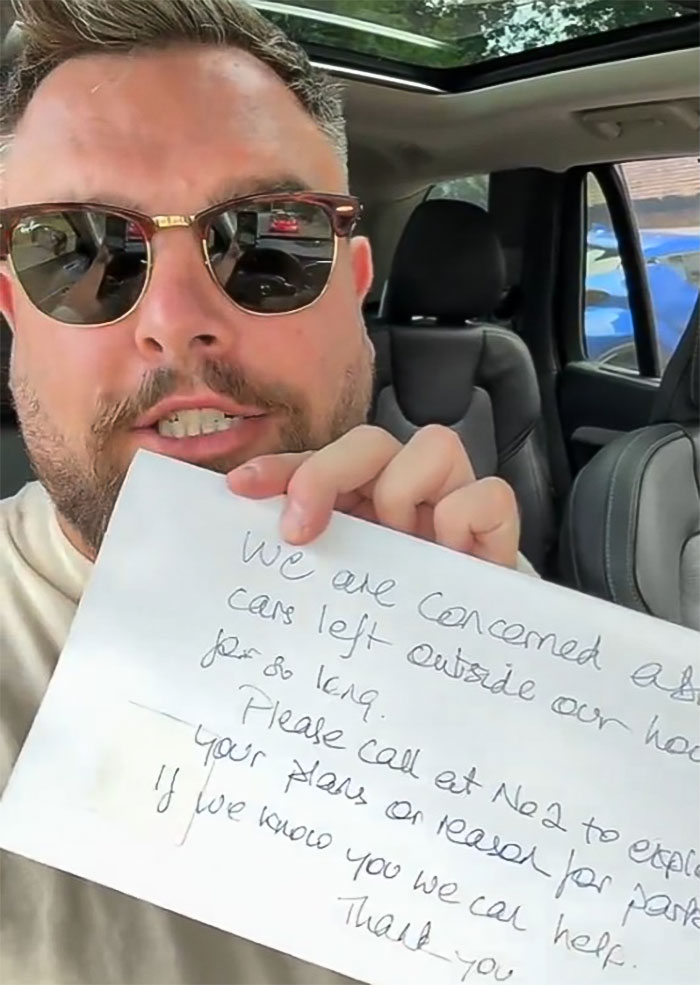 We are concerned
cars left outside our
for so long.
Please call at No2 to
your plans or reason for
If we know you we can help.
Thank you